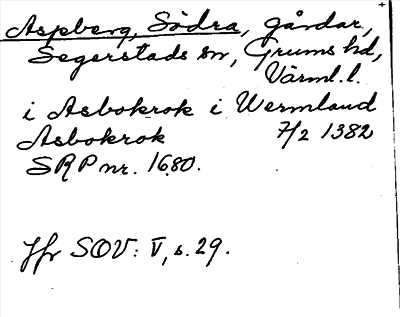 Aspberg, Södra, gårdar,
Segerstads sn, Grums hd,
Värml. l.
i Asbokrok i Wermland
Asbokrok 7/2 1382
SRP nr. 1680.
Jfr SOV: V, s. 29.